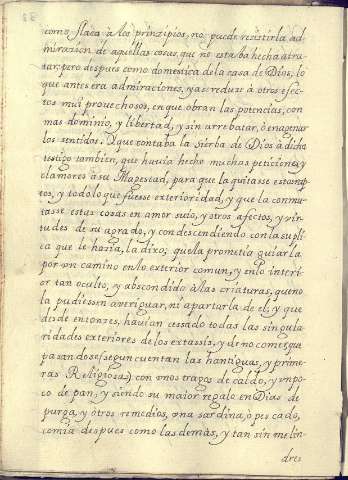 como flaca à los prinzipios, no puede resistir la ad
mirazion de aquellas cosas, que no estaba hecha atra
tar; pero despues como domestica de la casa de Dios, lo
que antes era admiraciones, ya se reduze à otros efec
tos mui provechosos, en que obran las potencias, con
mas dominio, y libertad, y sin arrebatar, ò enagenar
los sentidos. Y que contaba la Sierba de Dios à dicho
testigo tambien, que havia hecho muchas peticiones, y
clamores a su Magestad, para que la quitasse estos rap
tos, y todo lo que fuesse exterioridad, y que la conmu
tasse estas cosas en amor suio, y otros afectos, y vir
tudes de su agrado, y condescendiendo con la supli
ca que le hazia, la dixo; que la prometia guiarla
por vn camino en lo exterior comun, y en lo interi
or tan oculto, y abscondido à las criaturas, que no
la pudiessen averiguar, ni apartarla de el; y que
desde entonzes, havian cessado todas las singula
ridades exteriores de los extassis, y de no comer, que
pasandose (segun cuentan las hantiguas, y prime
ras Religiosas) con vnos tragos de caldo, y vn po
co de pan; y siendo su maior regalo en Dias de
purga, y otros remedios, vna sardina, ò pescado,
comia despues como las demàs, y tan sin melin
dres